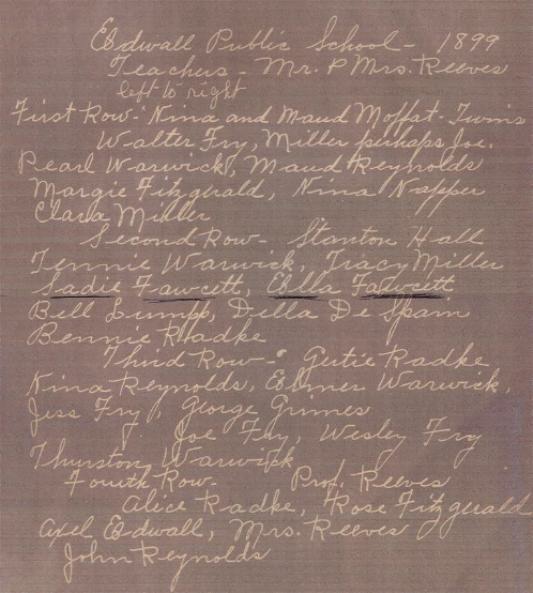 Edwall Public School - 1899
Teachers - Mr. & Mrs. Reeves
left to right
First Row - Nina and Maud Moffat - Twins
Walter Fry, Miller perhaps Joe.
Pearl Warwick, Maud Reynolds
Margie Fitzgerald, Nina Napper
Clara Miller
Second Row - Stanton Hall
Jennie Warwick, Tracy Miller
Sadie Fawcett, Ella Fawcett
Bell Lumpp, Della De Spain
Bennie Radke
Third Row - Gutie Radke
Nina Reynolds, Elmer Warwick,
Jess Fry, George Grimes
Joe Fry, Wesley Fry
Thurston Warwick
Fourth Row - Prof. Reeves
Alice Radke, Rose Fitzgerald
Axel Edwall, Mrs. Reeves
John Reynolds